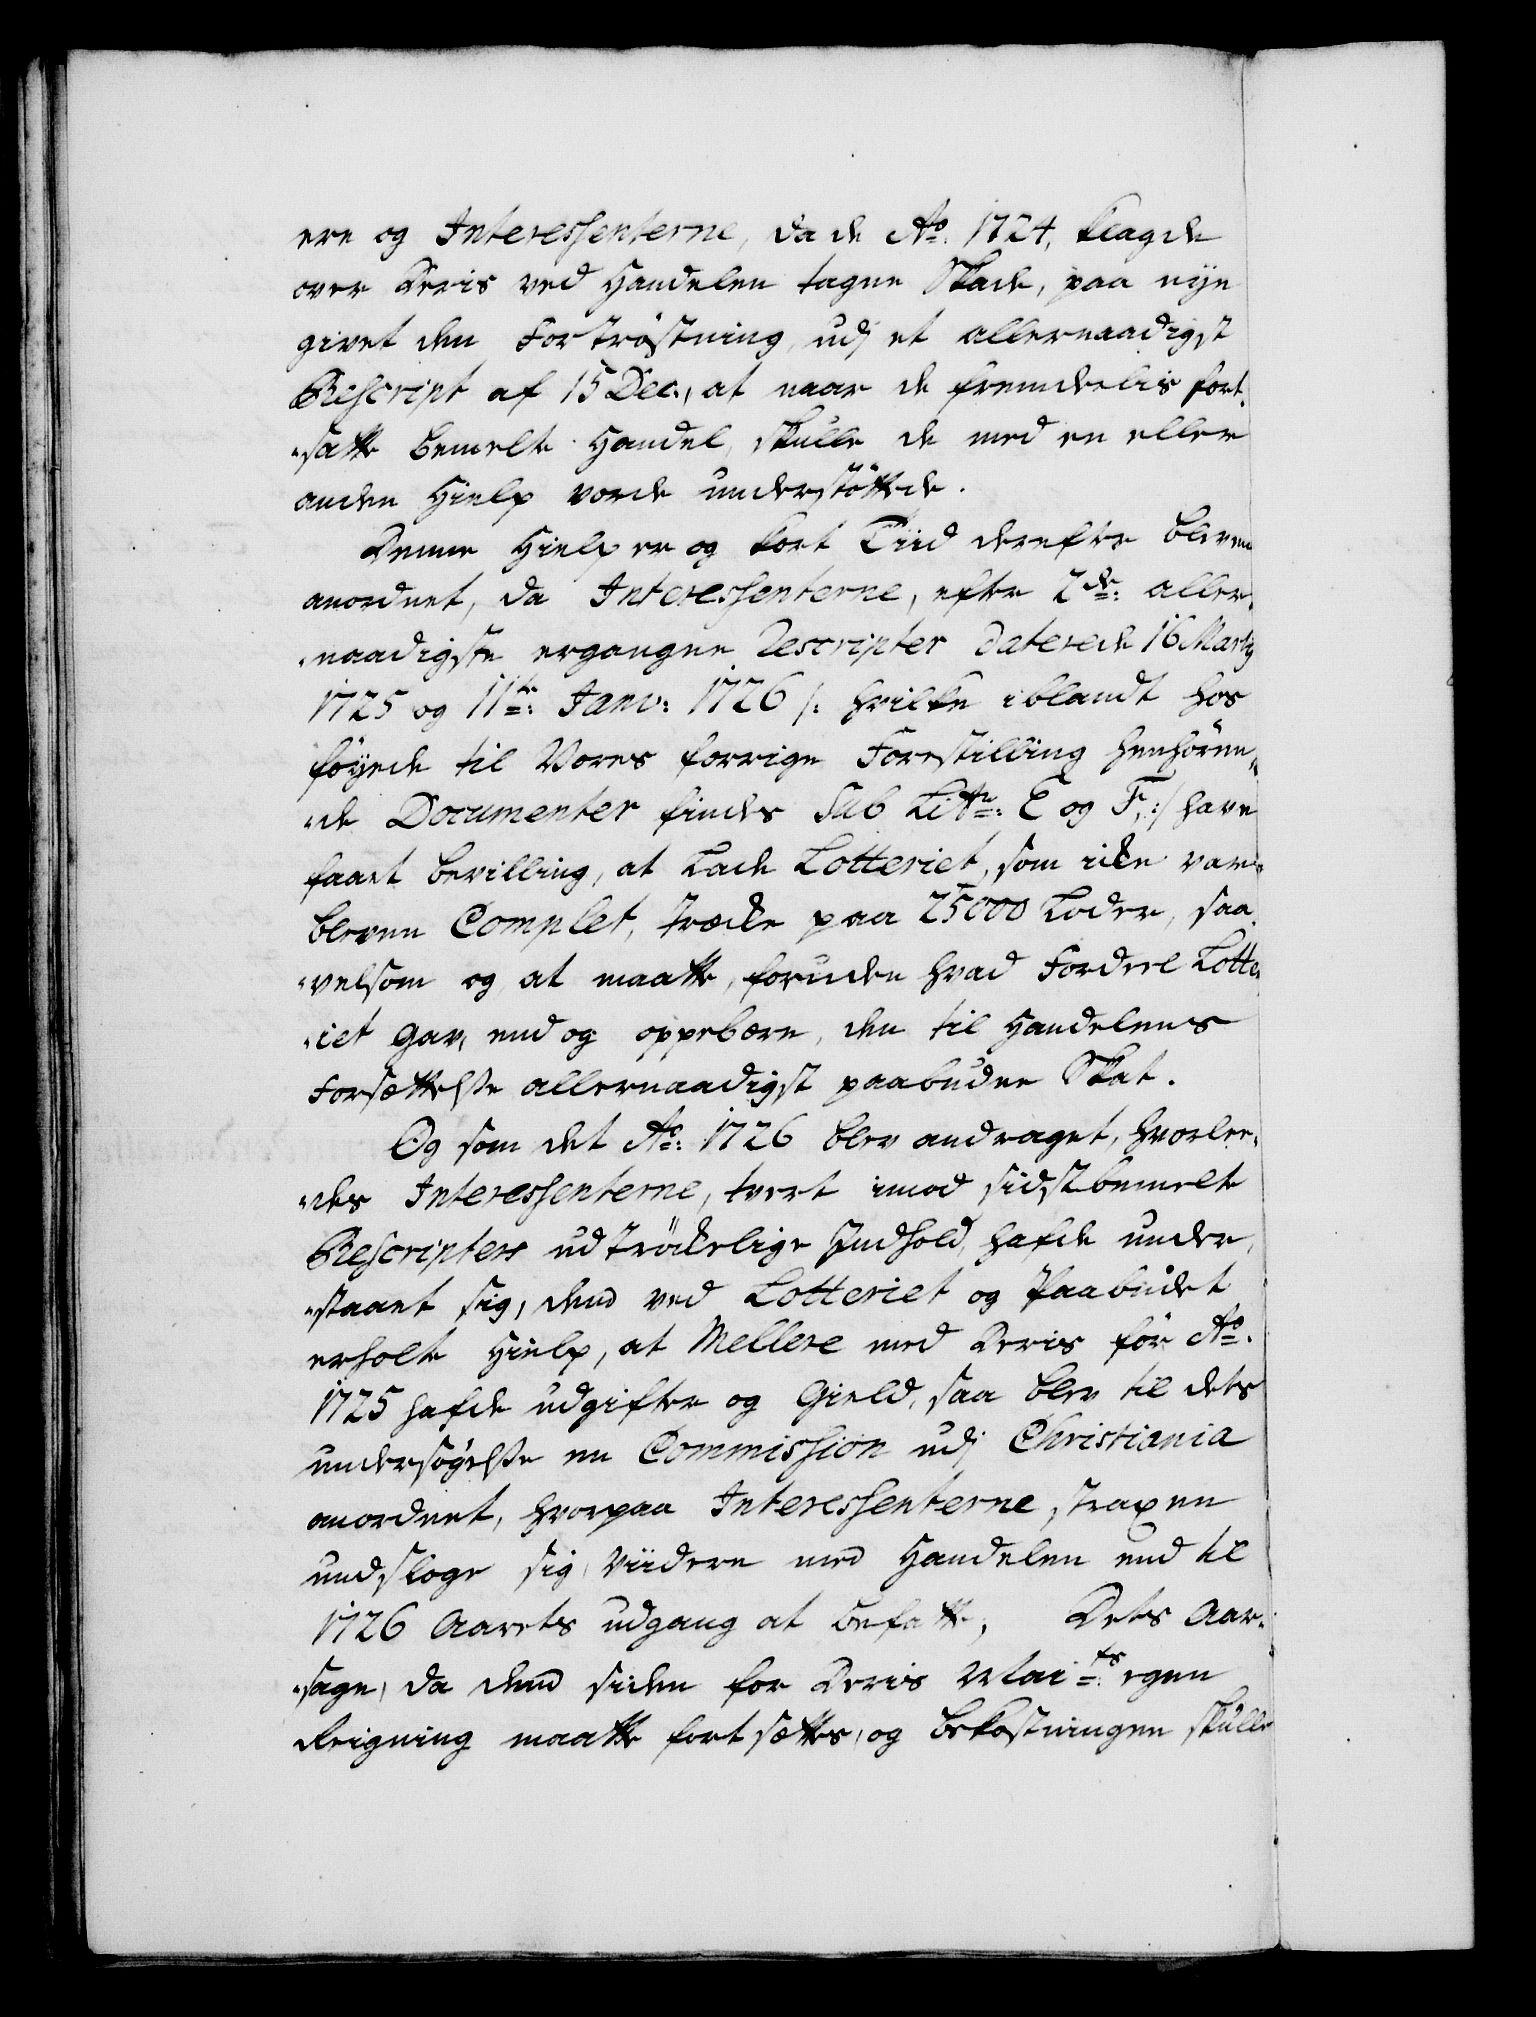 ere og Interessenterne, da de Ao. 1724, klagede
over deris ved Handelen tagne Skade, paa nye
givet den Fortröstning, udj et allernaadigst
Rescript af 15 Dec:, at naar de fremdelis fort-
"satte bemelte Handel, skulle de med en eller
anden Hielp vorde understöttede.
Denne Hielp er og kort Tiid derefter bleven
anordnet, da Interessenterne, efter 2de: aller-
"naadigste ergangne Rescripter daterede 16 Martij
1725 og 11te: Janv: 1726 /: hvilke iblandt hos
föyede til Vores forrige Forestilling henhören-
"de Documenter findes Sub Litr: E og F, :/ have
faaet bevilling, at lade Lotteriet, som icke var
bleven Complet, trecke paa 25000 Lodder, saa
"velsom og at maatte, foruden hvad Fordeel Lotte-
"riet gav, end og oppebære, den til Handelens
Forsættelse allernaadigst paabudne Skat.
Og som det Ao: 1726 blev andraget, hvorlee-
"des Interessenterne, tvert imod sidstbemelte
Rescripters udtröckelige Indhold, hafde under-
"staaet sig, dend ved Lotteriet og Paabudet
erholte Hielp, at Mellere med deris för Ao.
1725 hafde udgifter og Gield, saa blev til dets
undersögelse en Commission udj Christiania
anordnet, hvorpaa Interessenterne straxen
undsloge sig, viidere med Handelen end til
1726 Aarets udgang at befatte, Dets Aar-
"sage, da dend siden for Deris Maits: egen
Reigning maatte fortsættes, og bekostningen skulle